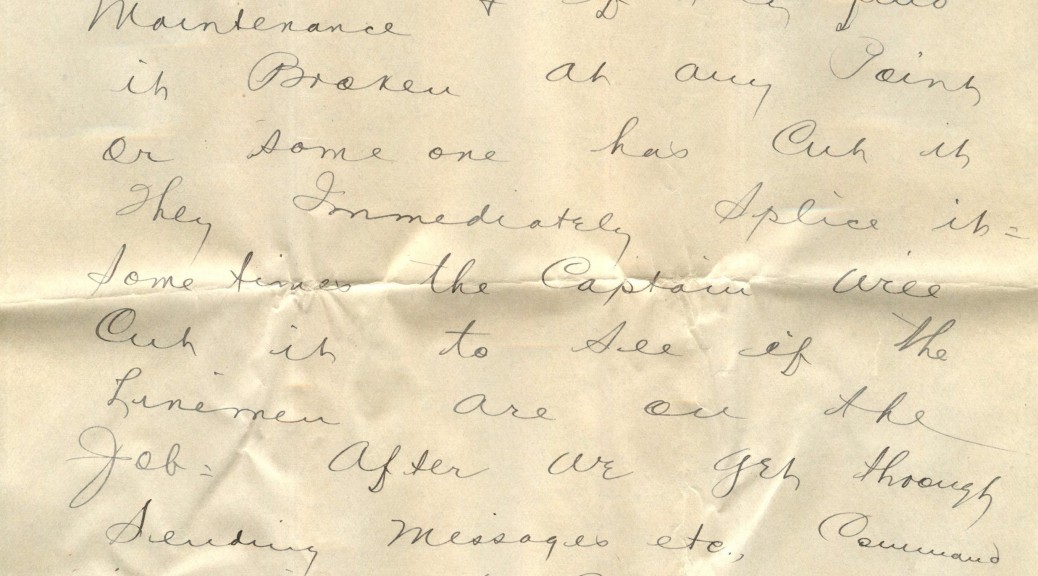 Maintenance & if they find
it Broken at any Point
or some one has Cut it
They Immediately Splice it =
Some times the Captain will
Cut it to see if the
Linemen are on the
Job = After we get through
Sending Messages etc., Command